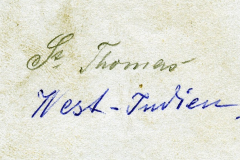 St Thomas
West-Indien.